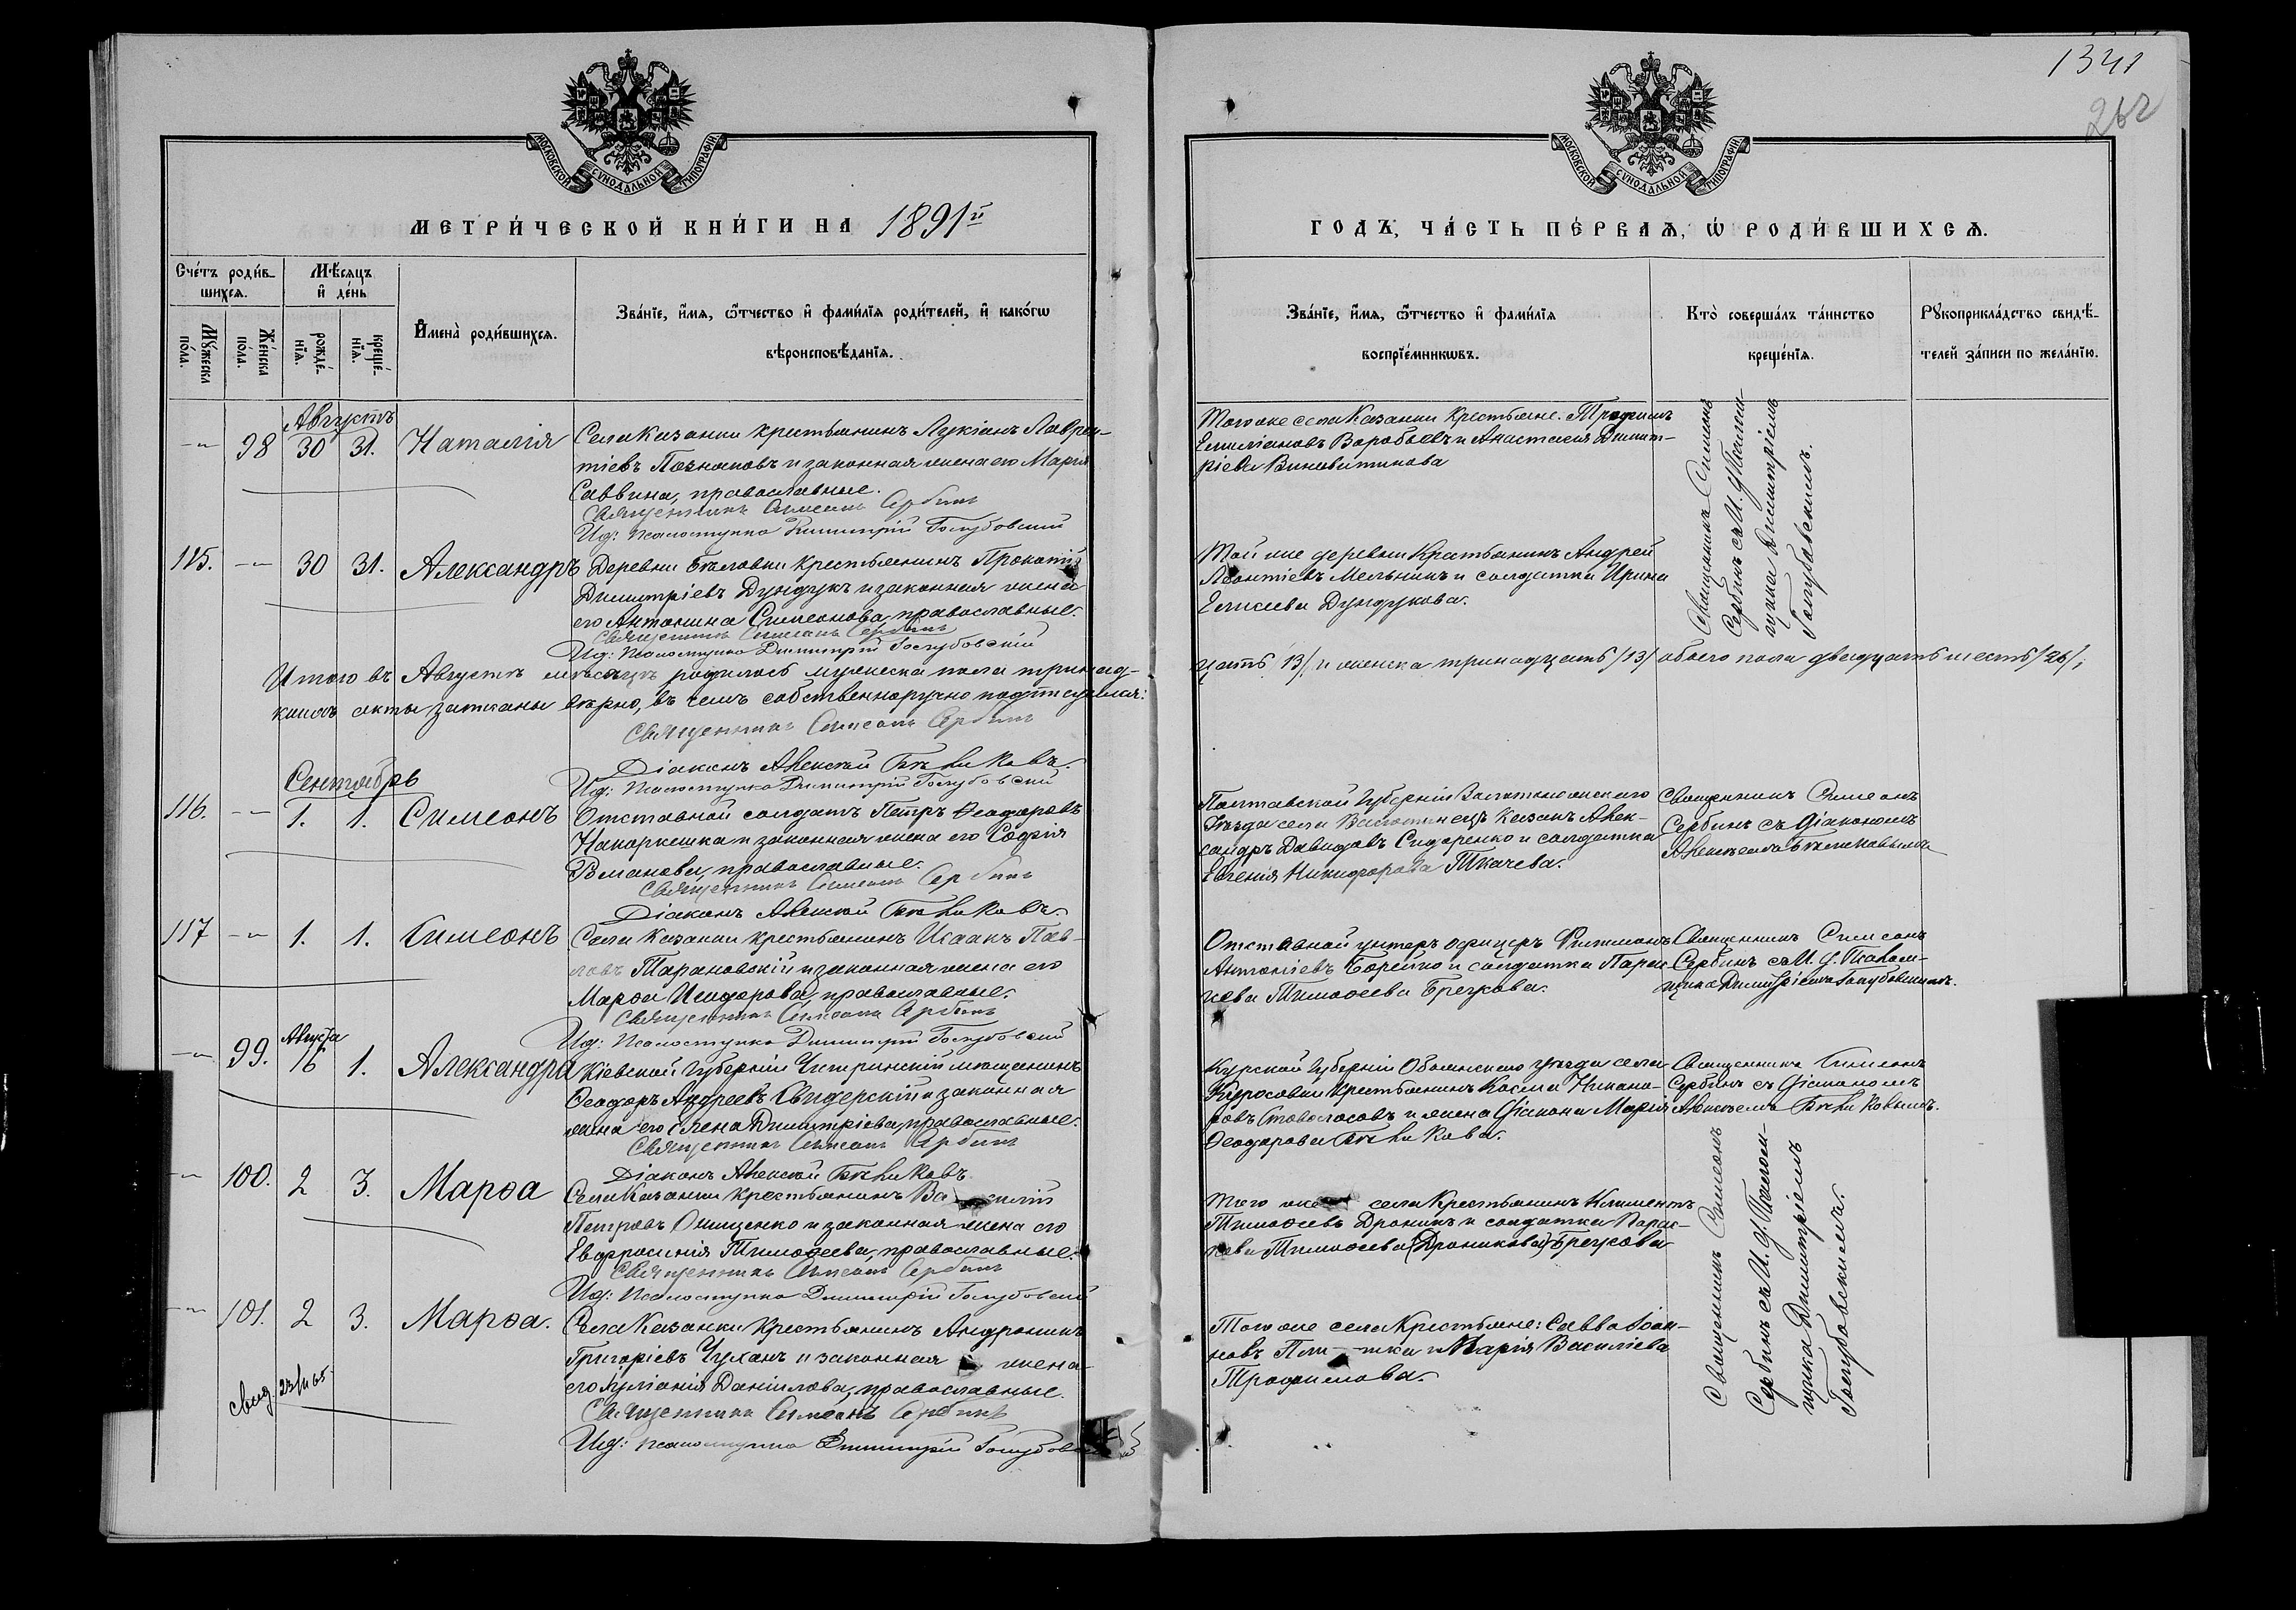 1341
262
МОСКОВСКОЙ СѴНОДАЛЬНОЙ ТИПОГРАФІИ
МОСКОВСКОЙ СѴНОДАЛЬНОЙ ТИПОГРАФІИ
МЕТРИ́ЧЕСКОЙ КНИ́ГИ НА 1891й
ГОДЪ, ЧА́СТЬ ПЕ́РВАѦ, Ѡ҆ РОДИ́ВШИХСѦ.
Сче́тъ роди́в-
шихсѧ.
Мѣ́сѧцъ
и҆ де́нь
Му́жеска
по́ла.
Же́нска
по́ла.
рожде́-
нїѧ.
креще́-
нїѧ.
И҆мена̀ роди́вшихсѧ.
Зва́нїе, и҆́мѧ, ѻ҆́тчество и҆ фами́лїѧ роди́телей, и҆ како́гѡ
вѣроисповѣ́данїѧ.
Зва́нїе, и҆́мѧ, ѻ҆́тчество и҆ фами́лїѧ
воспрїе́мникѡвъ.
Кто̀ соверша́лъ та́инство
креще́нїѧ.
Рꙋкоприкла́дство свидѣ́-
телей за́писи по жела́нїю.
Августъ
-"- 98 30 31. Наталія
Села Казанки крестьянинъ Лукіанъ Лаврен-
тіевъ Познаховъ и законная жена его Марія
Саввина, православные.
Священникъ Симеонъ Сербинъ
Ид: Псаломщика Димитрій Голубовскій
Того же села Казанки крестьяне. Трофимъ
Емиліановъ Воробьевъ и Анастасія Димит-
ріева
Священникъ Симеонъ
Сербинъ съ И. д. Псалом-
щика Димитріемъ
Голубовскимъ.
115. -"- 30 31. Александръ
Деревни Бѣловки крестьянинъ Прокопій
Димитріевъ Дундукъ и законная жена
его Антонина Симеонова, православные.
Священникъ Симеонъ Сербинъ
Ид: Псаломщика Димитрій Голубовскій
Той же деревни Крестьянинъ Андрей
Леонтіевъ Мельникъ и солдатка Ирина
Елисеева Дундукова.
Итого въ Августѣ мѣсяцѣ родилось мужеска пола тринад-
цать /13/, и женска тринадцать /13/ обоего пола двадцать шесть /26/;
акты записаны вѣрно, въ чемъ собственноручно подписуемся:
Священникъ Симеонъ Сербинъ
Діаконъ Алексѣй Бѣликовъ.
Ид: Псаломщика Димитрій Голубовскій
Сентябрь
116. -"- 1. 1. Симеонъ
Отставной солдатъ Петръ Ѳеодоровъ
и законная жена его Софія
Романова, православные.
Священникъ Симеонъ Сербинъ
Діаконъ Алексѣй Бѣликовъ.
Полтавской Губерніи Золотоношскаго
Уѣзда села казакъ Алек-
сандръ Давидовъ Сидоренко и солдатка
Евгенія Никифорова Ткачева.
Священникъ Симеонъ
Сербинъ съ Діакономъ
Алексѣемъ Бѣликовымъ
117 -"- 1. 1. Симеонъ
Села Казанки крестьянинъ Исаакъ Пав-
ловъ Тарановскій и законная жена его
Марѳа Исидорова, православные.
Священникъ Симеонъ Сербинъ
Ид: Псаломщика Димитрій Голубовскій
Отставной унтеръ офицеръ Филимонъ
Антоніевъ Борейко и солдатка Парас-
кева Тимоѳеева Бречкова.
Священникъ Симеонъ
Сербинъ съ И. д. Псалом-
щика Димитріемъ Голубовскимъ.
Августа
-"- 99. 16 1. Александра
Кіевской Губерніи Чигиринскій мѣщанинъ
Ѳеодоръ Андреевъ Свидерскій и законная
жена его Елена Димитріева, православные.
Священникъ Симеонъ Сербинъ
Діаконъ Алексѣй Бѣликовъ
Курской Губерніи Обоянскаго уѣзда села
Крестьянинъ Косма Никано-
ровъ и жена Діакона Марія
Ѳеодорова Бѣликова.
Священникъ Симеонъ
Сербинъ съ Діакономъ
Алексѣемъ Бѣликовымъ.
-"- 100. 2 3. Марѳа
Села Казанки крестьянинъ Василій
Петровъ Онищенко и законная жена его
Евфросинія Тимоѳеева, православные.
Священникъ Симеонъ Сербинъ
Ид: Псаломщика Димитрій Голубовскій
Того же села Крестьянинъ Климентъ
Тимоѳеевъ Дроникъ и солдатка Парас-
кева Тимоѳеева (Дроникова) Бречкова
Священникъ Симеонъ
Сербинъ съ И. д. Псалом-
щика Димитріемъ
Голубовскимъ.
-"- 101. 2 3. Марѳа.
Села Казанки Крестьянинъ Андроникъ
Григоріевъ Чуханъ и законная жена
его Іуліанія Даніилова, православные.
Священникъ Симеонъ Сербинъ
Ид: Псаломщика Димитрій Голубовскій
Того же села Крестьяне: Савва Іоан-
новъ и Марія Василіева
Трофимова.
свид. 23/II 65.